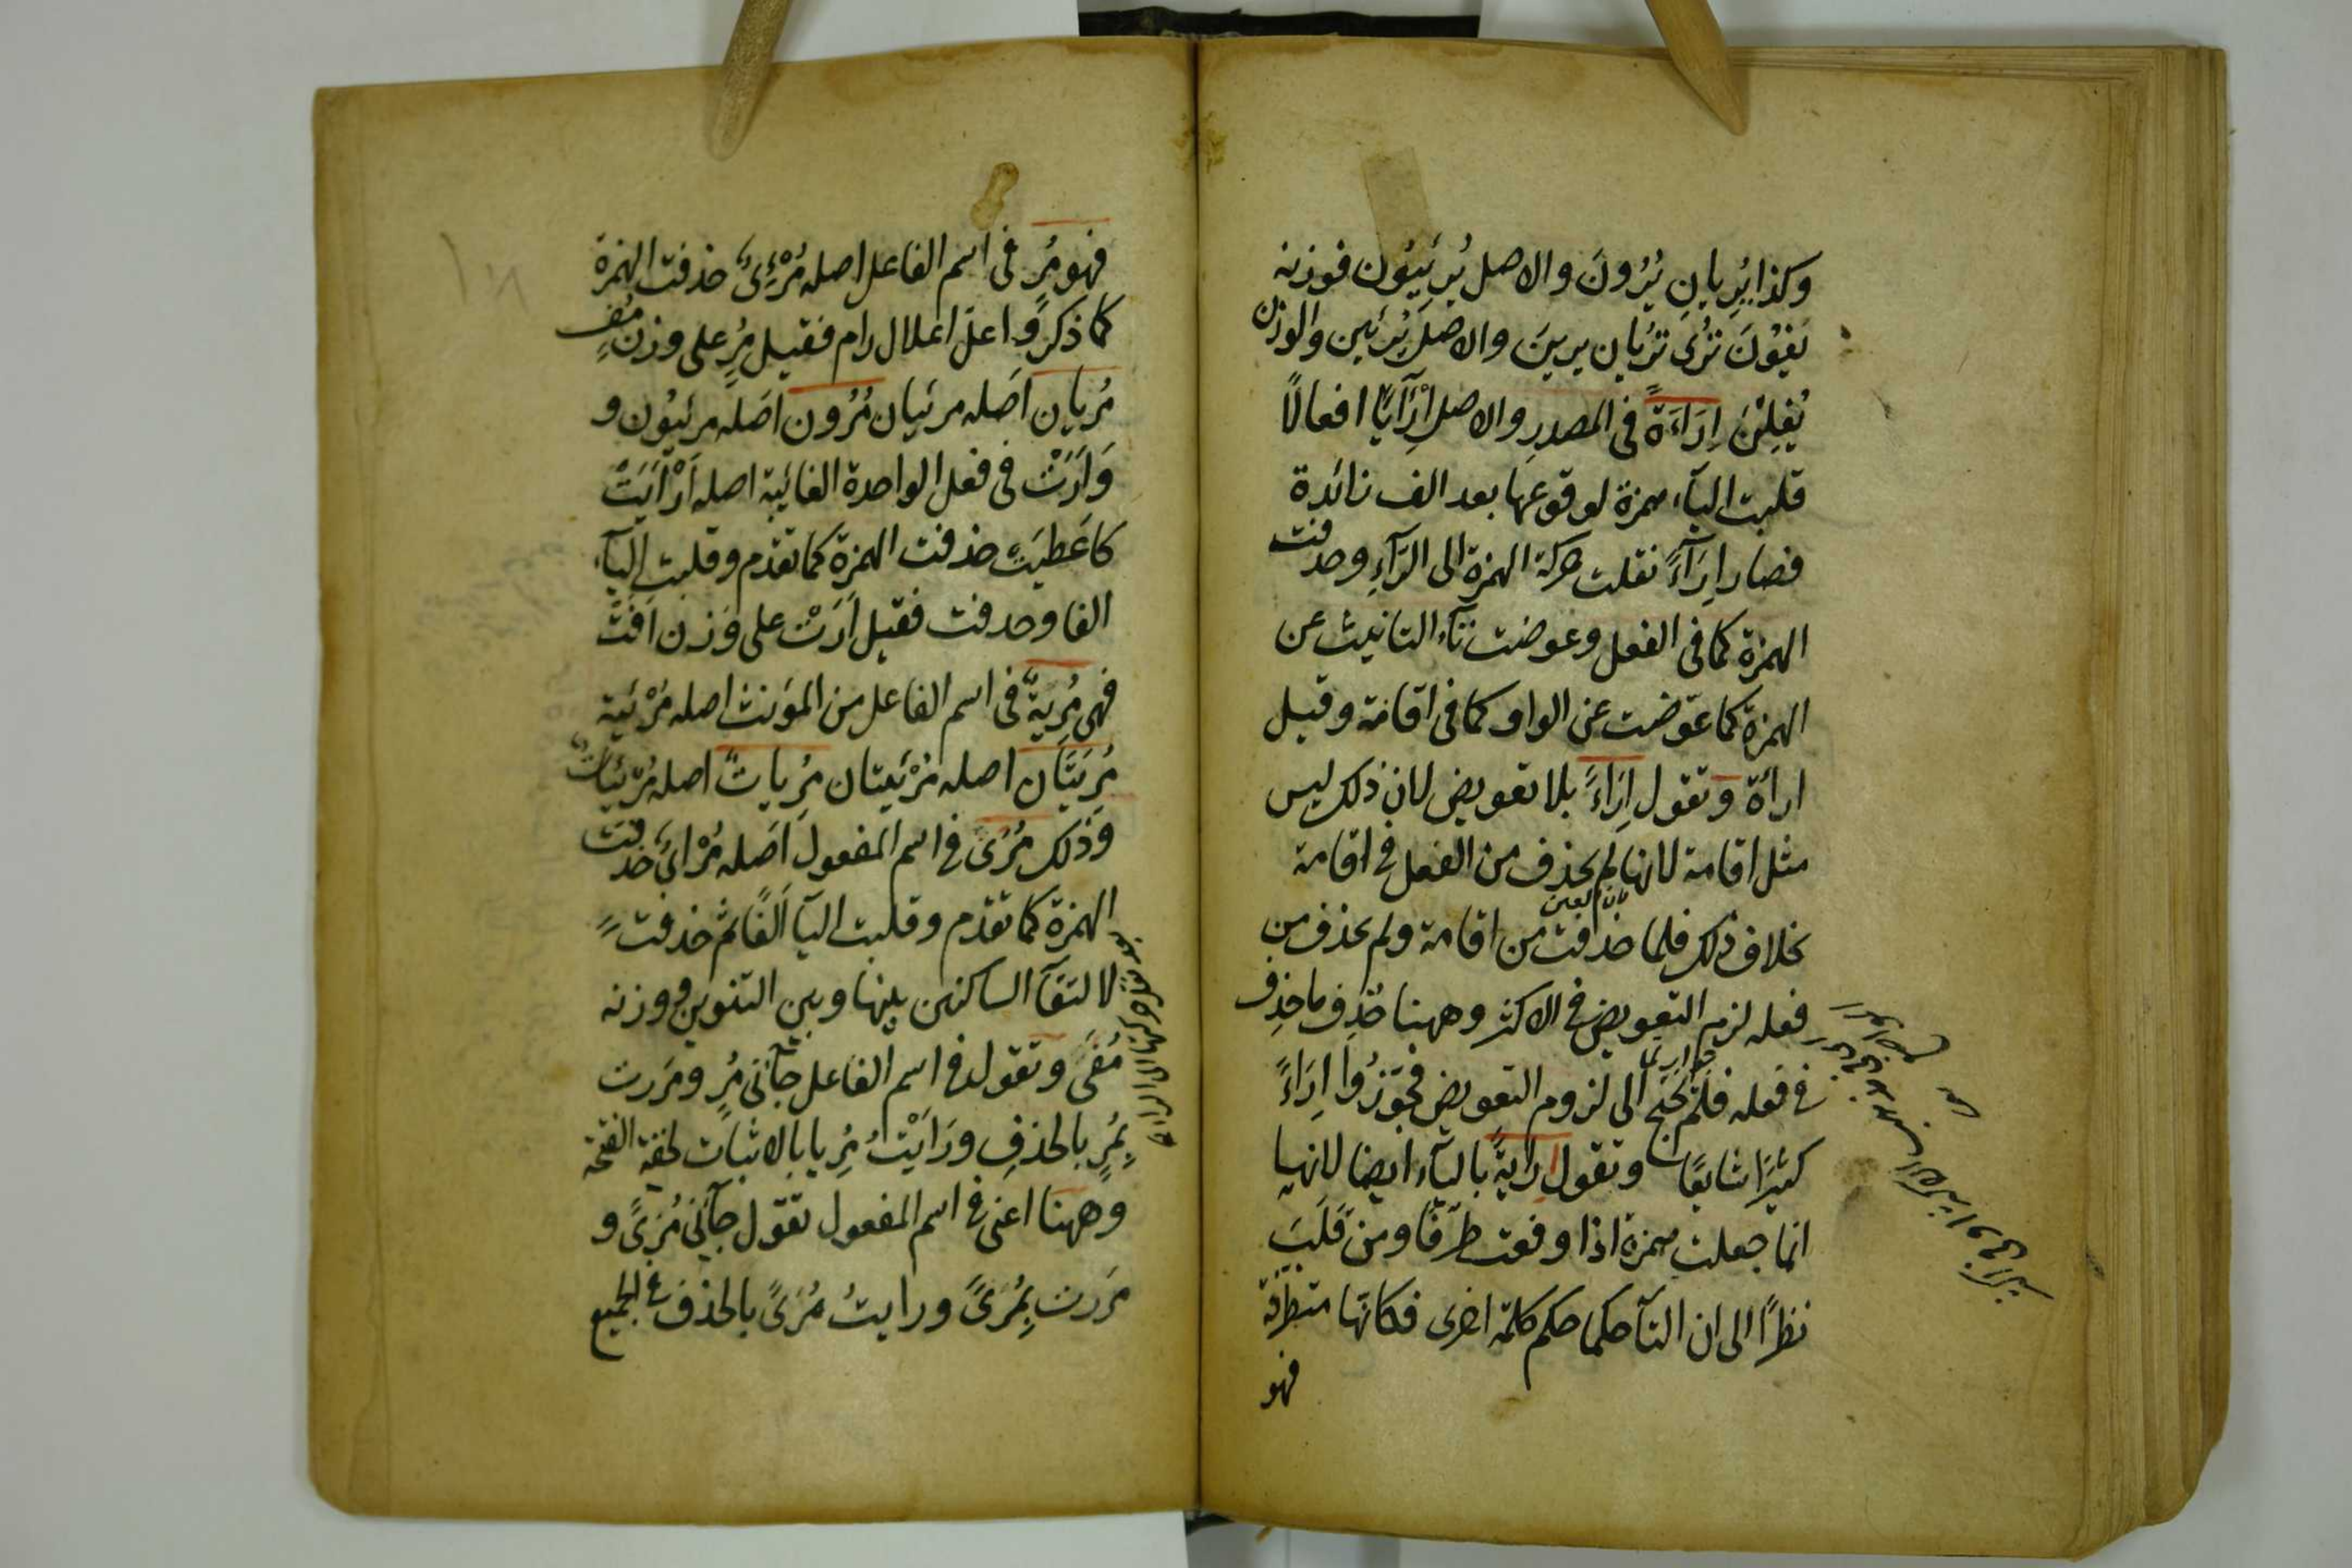 وكذا يُرِيانِ يُرُونَ والاصل يُرئِيُونَ فوزنه
يَفيُونَ تُرى تُرَيان يرينَ والاصل يُرئين والوزن
يُفِلنَ اِرَاءَةً فى المصدرِ والاصل اِرْآيًا افعالًا
قلبت اليآء همزة لوقوعها بعد الف زائدة
فصار اِرَآءً نقلت حركة الهمزة الى الرَّآءِ وحذفت
الهمزة كما فى الفعل وعوضت تآء التانيث عن
الهمزة كما عوّضت عن الواو كما فى اقامة وقيل
اراَة وتقول اِرَاءً بلا تعويض لان ذلك ليس
مثل اقامة لانها لم يحذف من الفعل فى اقامة
بخلاف ذلك فلما حذفت من اقامة ولم يحذف من
فعله لزم التعويض فى الاكثر وههنا حُذِف ما حذِف
فى فعله فلم يحتج الى لزوم التعويض فجوّزُوا اِرَاءً
كثيرًا شايعًا وتقول اِرايةً باليآء ايضا لانها
انما جعلت همزة اذا وقعت طرَفًا ومن قَلَبَ
نظرًا الى ان التآ حكمها حكم كلمة اخرى فكانّها متطرّفة
فهو
فهو مُرٍ فى اسم الفاعل اصله مُرْئِىٌ حذفت الهمزة
كما ذكر واعلّ اعلال رام فقيل مُرٍ على وزن مُفٍ
مُرِيان اصَله مرئيان مُرُون اصَله مرئيُون و
وَاَرَتْ فى فعل الواحدة الغائبة اصله اَرْاَيَتْ
كاَعَطيَتْ حذفت الهمزة كما تقدم وقلبت اليآء
الفا وحذفت فقيل اَرَتْ على وَزن اَفَتْ
فهى مُرِيَةٌ فى اسم الفاعل من المؤنث اصله مُرْئية
مُرِيَتَان اصله مُرْئيتان مُرِياتٌ اصله مُرْئياتٌ
وَذلك مُرًى فى اسم المفعول اصَله مُرْاَىٌ حذفت
الهمزة كما تقدم وقلبت اليآ اَلفًا ثم حذفت
لالتقآ الساكنين بينها وبين التنوين ووزنه
مُفًى وتقول فى اسم الفاعل جآنى مُرٍ ومَررت
بِمُرٍ بالحذفِ ورَاَيْتُ مُرِيا بالاثبات لخفة الفتحة
وههنا اعنى فى اسم المفعول تقول جآنى مُرًى و
مَررت بِمُرًى ورايتُ مُرًى بالحذف فى الجميع